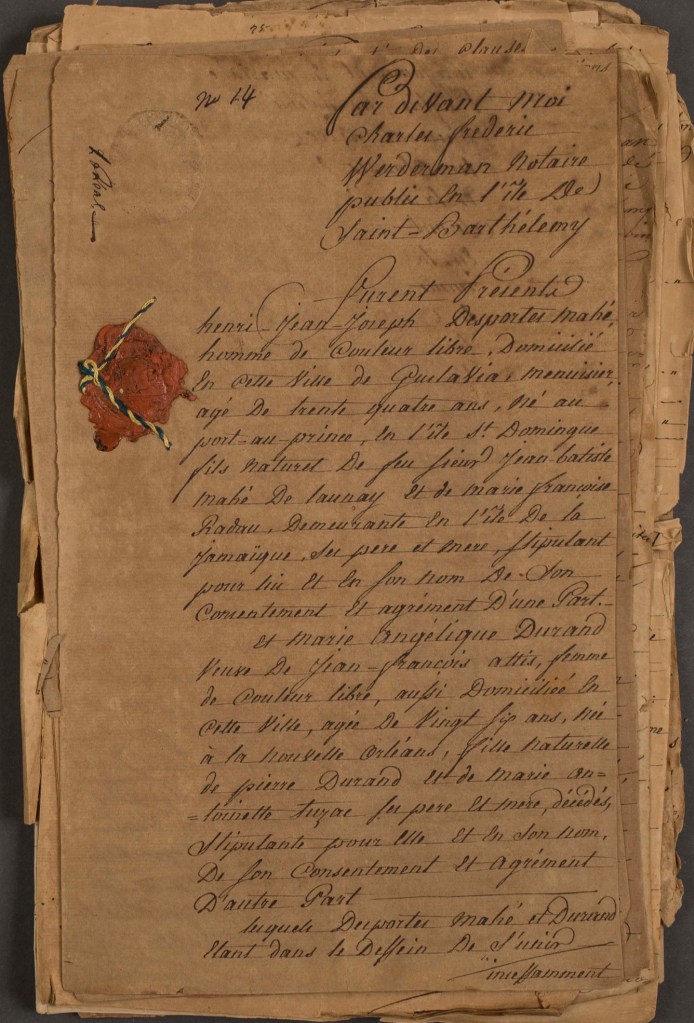 No 14
Par devant moi
Charles frederic
Werderman Notaire
public En l'île De
Saint=Barthélemy
furent Présents
henri-Jean-Joseph Desportes mahé,
homme de Couleur libre, Domicilié
En cette Ville de Gustavia, menuisier,
agé De trente quatre ans, Né au
port-au-prince, En l'île St Domingue
fils naturel De feu sieur Jean-batiste
mahé De launay Et de marie francoise
Radau, Demeurante En l'île De la
Jamaïque, ses pere et mere, stipulant
pour lui Et En son nom De Son
Consentement Et agrément D'une Part.-
Et Marie Angélique Durand
Veuve De Jean-francois attis, femme
de Couleur libre, aussi Domiciliée En
Cette Ville, agée De Vingt six ans, Née
à la nouvelle Orléans, fille naturelle
de pierre Durand Et de marie an-
=toinette tuzac ses pere Et mere, décédés,
Stipulante pour Elle Et En son nom,
De son Consentement Et Agrément
D'autre Part
lesquels Desportes mahé et Durand
Etant dans le Dessein De S'unir
incessamment